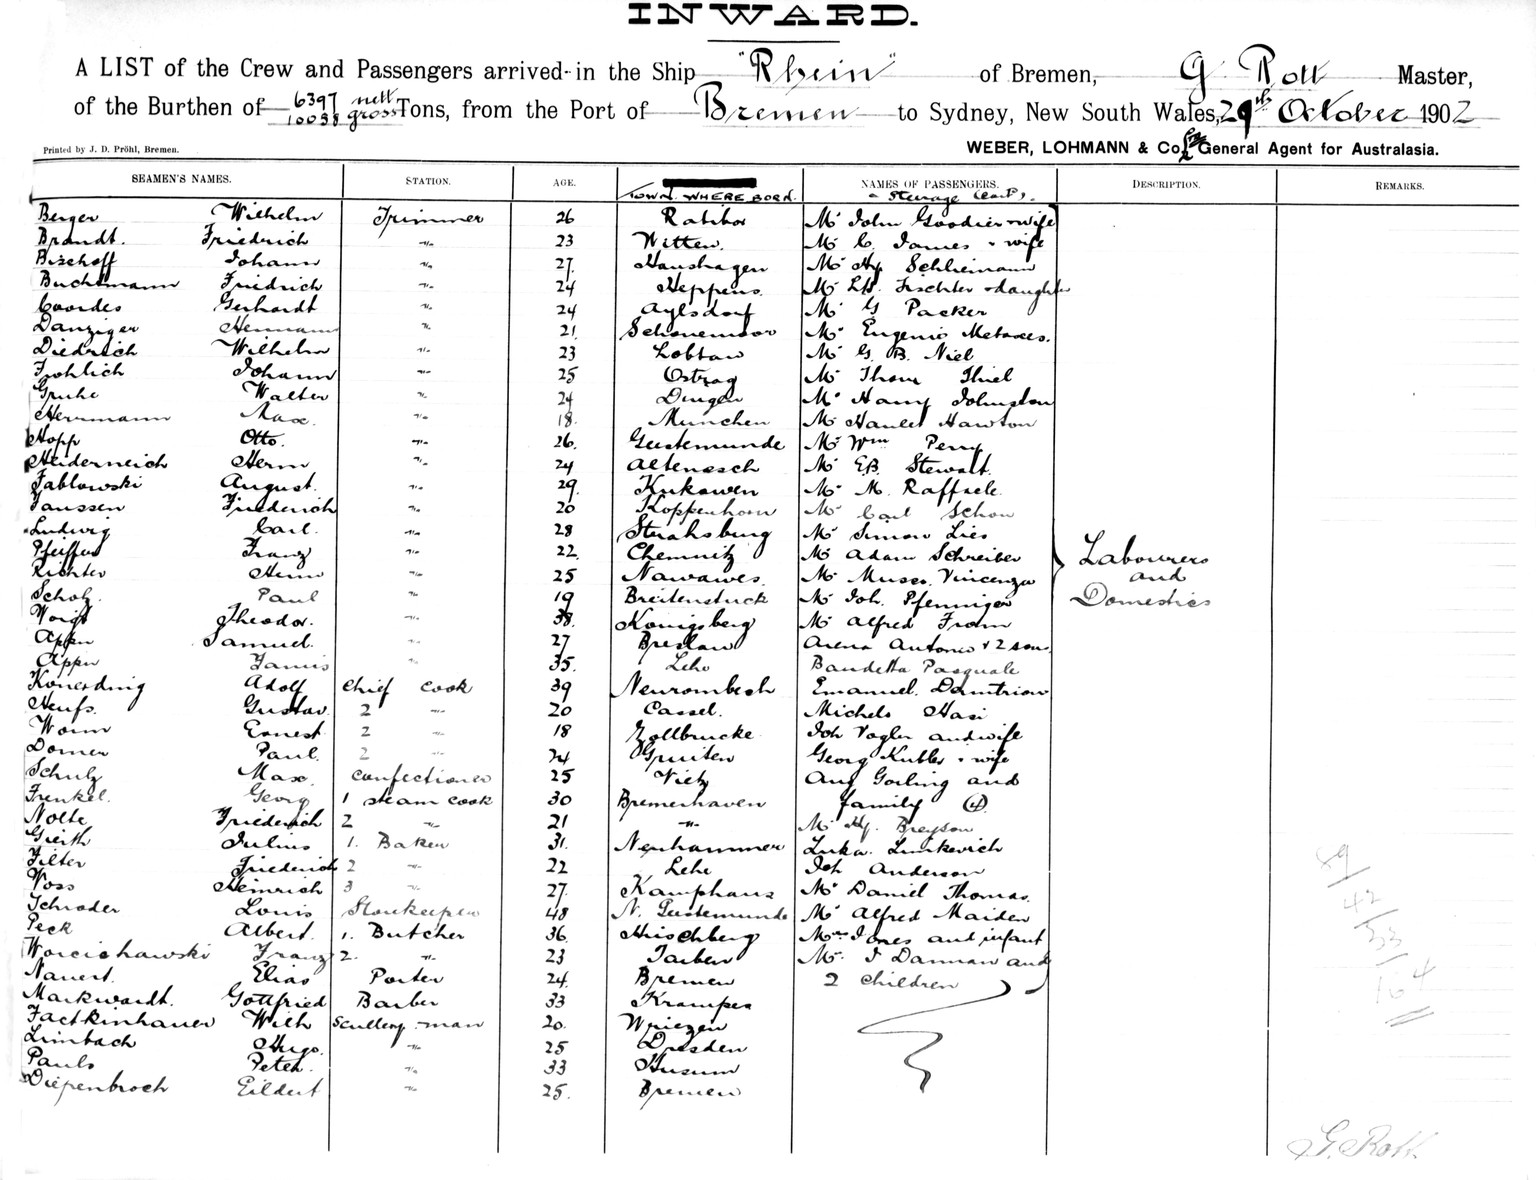 INWARD.
A LIST of the Crew and Passengers arrived in the Ship "Rhein" of Bremen, G Rott Master,
of the Burthen of 6397 nett 10058 gross Tons, from the Port of Bremen to Sydney, New South Wales, 29th October 1902
Printed by J. D. Pröhl, Bremen.
WEBER, LOHMANN & Co General Agent for Australasia.
SEAMEN'S NAMES. STATION. AGE. TOWN WHERE BORN. NAMES OF PASSENGERS. DESCRIPTION. REMARKS.
Steerage (cont).
Berger Wilhelm Trimmer 26 Ratibor Mr John Goodier & wife
Brandt. Friedrich -"- 23 Witten. Mr C. James & wife
Bischoff Johann -"- 27 Haushagen Mr Hy Schliemann
Buchtmann Friedrich -"- 24 Heppens. Mr Fischter & daughter
Coordes Gerhardt -"- 24 Aylsdorf Mr G Packer
Danziger Hermann -"- 21 Schonemoor Mr Eugenio Metaxes.
Diedrich Wilhelm -"- 23 Lobtau Mr G. B. Niel
Frohlich Johann -"- 25 Ostrag Mr Thom Thiel
Gruhe Walter -"- 24 Dingen Mr Harry Johnston
Herrmann Max. -"- 18 Munchen Mr Hawton
Hopp Otto. -"- 26. Geestemunde Mr Wm Perry
Heiderneich Herm -"- 24 Altenesch Mr E.B. Stewalt.
Jablowski August. -"- 29. Kukowen Mr M. Raffaele.
Janssen Friederich -"- 20 Koppenhorn Mr Carl Schon
Ludwig Carl. -"- 28 Strahsburg Mr Simon Lies
Pfeiffer Franz -"- 22 Chemnitz Mr Adam Schreiber
Richter Herm -"- 25 Nawawes. Mr Musso. Vincenza
Labourers and Domestics
Scholz. Paul -"- 19 Breitenstuck Mr Joh. Pfenniger
Voigt Theodor. -"- 38. Konigsberg Mr Alfred From
Appn Samuel. -"- 27 Breslau Arena Antonio & 2 sons.
Appn -"- 35. Lehe Bandetta Pasquale
Konerding Adolf Chief cook 39 Neurombech Emanuel. Damtriou
Heufs. Gustav. 2 -"- 20 Cassel. Michels Hasi
Worm Ernest 2 -"- 18 Zollbrucke Joh Vogler and wife
Dorner Paul. 2 -"- 24 Gruiten Georg Kubler & wife
Schulz Max. Confectioner 25 Vietz Aug Gorling and
Frenkel. Georg 1 steam cook 30 Bremerhaven family (4)
Nolte Friederich 2 -"- 21 -"- Mr Hy. Breyson
Gieith Julius 1. Baker 31. Neuhammer Luka. Linkevich
Filter Friederich 2 -"- 22 Lehe Joh Anderson
Voss Heinrich 3 -"- 27. Kamphaus Mr Daniel Thomas.
Schroder Louis Storekeeper 48 N. Geestemunde Mr Alfred Maiden
Peck Albert. 1. Butcher 36. Hirschberg Mrs Jones and infant
Worcichowski Franz 2. -"- 23 Tarben Mr. J Damman and
Nauert. Elias Porter 24. Bremen 2 children
Markwardt. Gottfried Barber 33 Krampen
Factkinhauer Wilh Scullery-man 20. Wriezen
Limbach Hugo. -"- 25 Dresden
Pauls Peter. -"- 33 Husum
Diepenbroch Eildert -"- 25. Bremen
89/
42/
33/
164
G. Rott.